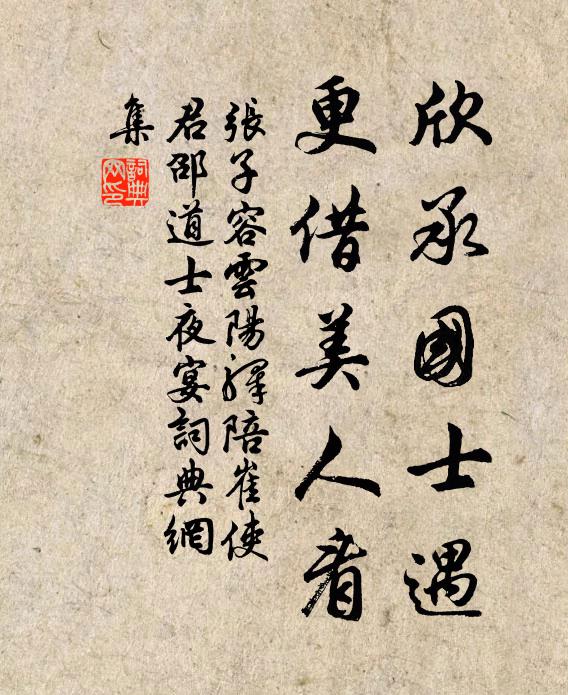 欣承國士遇
更借美人看
張子容雲陽驛陪崔使
君邵道士夜宴詞典網
集
詞典
网印